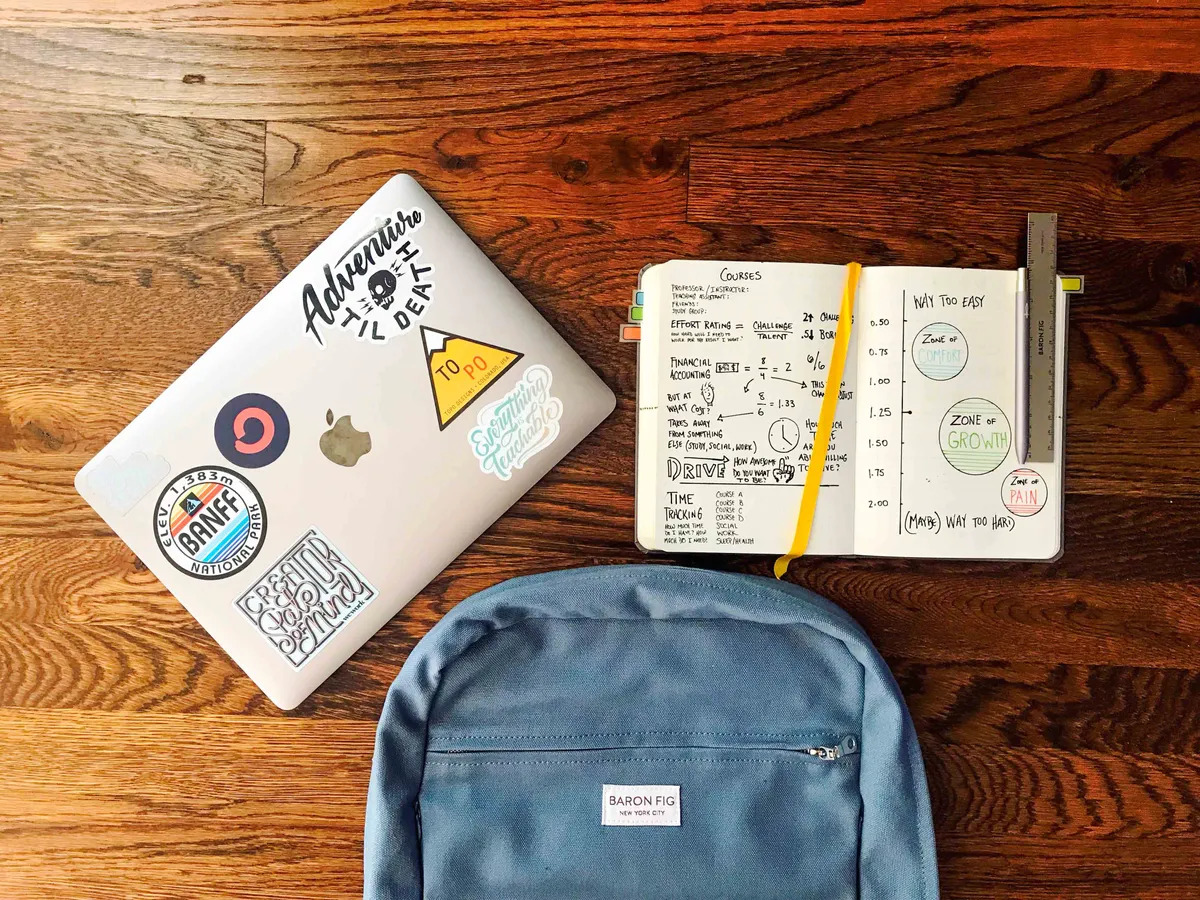 Adventure
TIL DEATH
TO PO
TOPO DESIGNS - COLORADO, USA
Everything
is
Teachable
ELEV. 1,383m
BANFF
NATIONAL PARK
CREATOR
State
OF Mind
wework
COURSES
PROFESSOR / INSTRUCTOR:
TEACHING ASSISTANT:
FRIENDS:
STUDY GROUP:
EFFORT RATING = CHALLENGE
TALENT
HOW HARD WILL I NEED TO
WORK FOR THE RESULT I WANT?
2↑
.5↓
FINANCIAL
ACCOUNTING
$$$ = 8
4 = 2
6/6
8
6 = 1.33
BUT AT
WHAT COST?
TAKES AWAY
FROM SOMETHING
ELSE (STUDY, SOCIAL, WORK)
DRIVE
HOW AWESOME
DO YOU WANT
TO BE?
TIME
TRACKING
HOW MUCH TIME
DO I HAVE? HOW
MUCH DO I NEED?
COURSE A
COURSE B
COURSE C
COURSE D
SOCIAL
WORK
SLEEP/HEALTH
WAY TOO EASY
0.50
0.75
1.00
1.25
1.50
1.75
2.00
ZONE OF
COMFORT
ZONE OF
GROWTH
ZONE OF
PAIN
(MAYBE) WAY TOO HARD
BARON FIG
BARON FIG
NEW YORK CITY